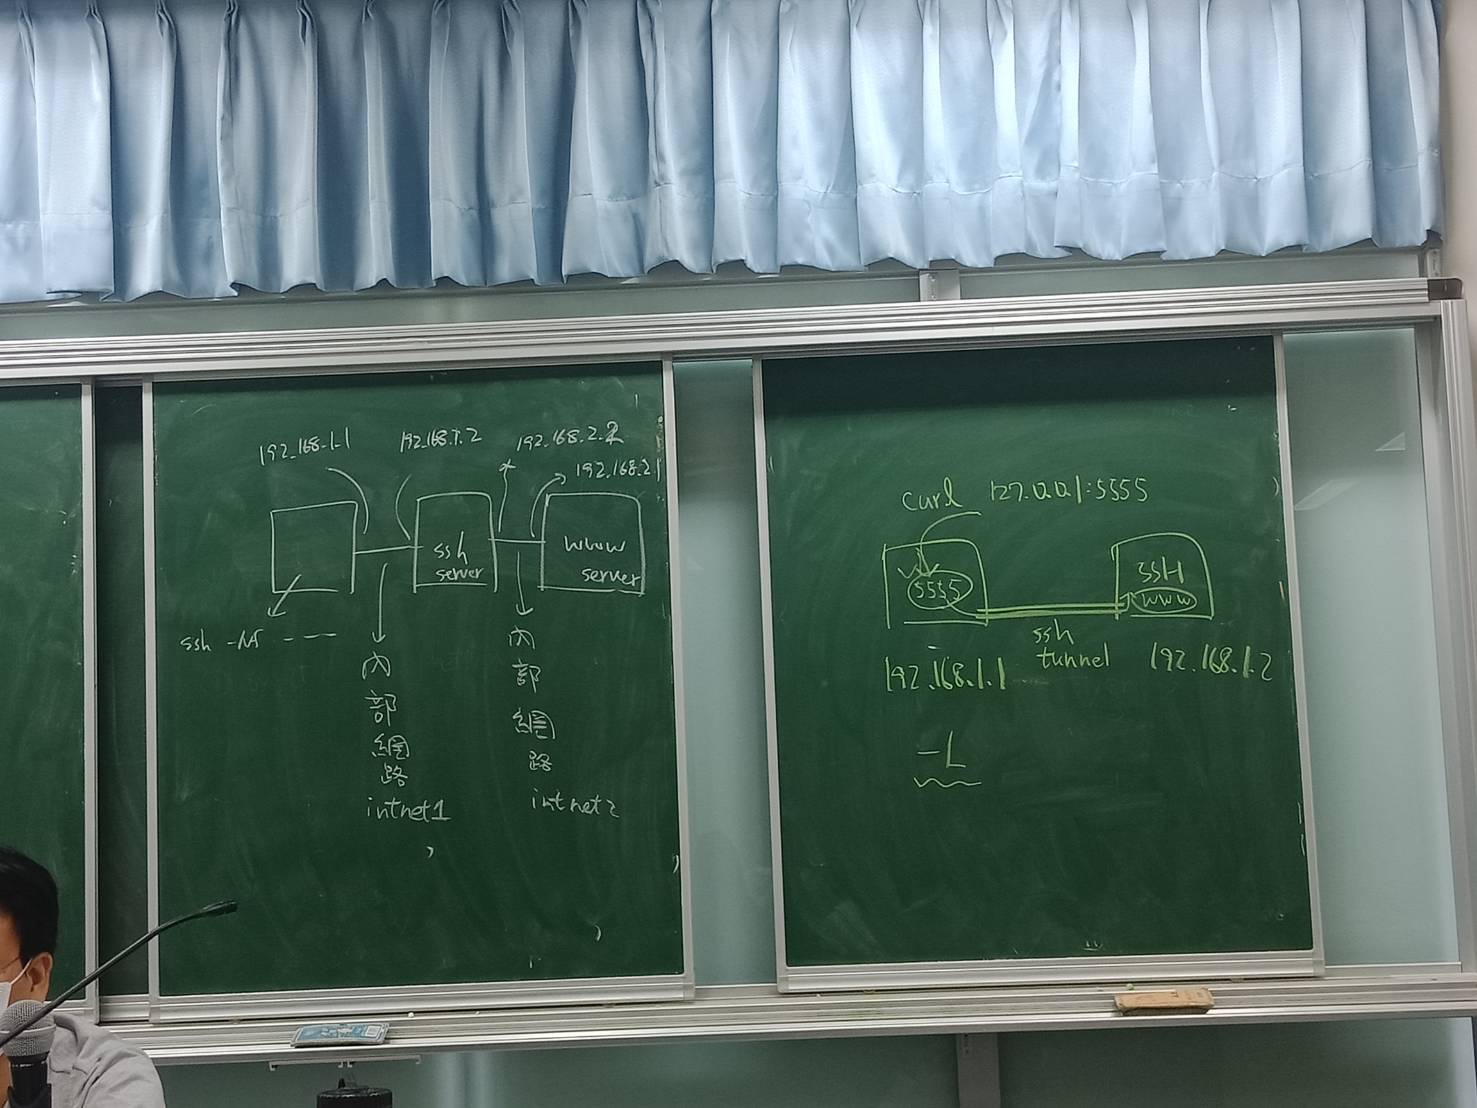 192.168.1.1
192.168.1.2
192.168.2.2
192.168.2.1
ssh
server
www
server
ssh -Nf - - -
內
部
網
路
intnet1
內
部
網
路
intnet2
curl 127.0.0.1:5555
5555
SSH
www
ssh
tunnel
192.168.1.1
192.168.1.2
-L